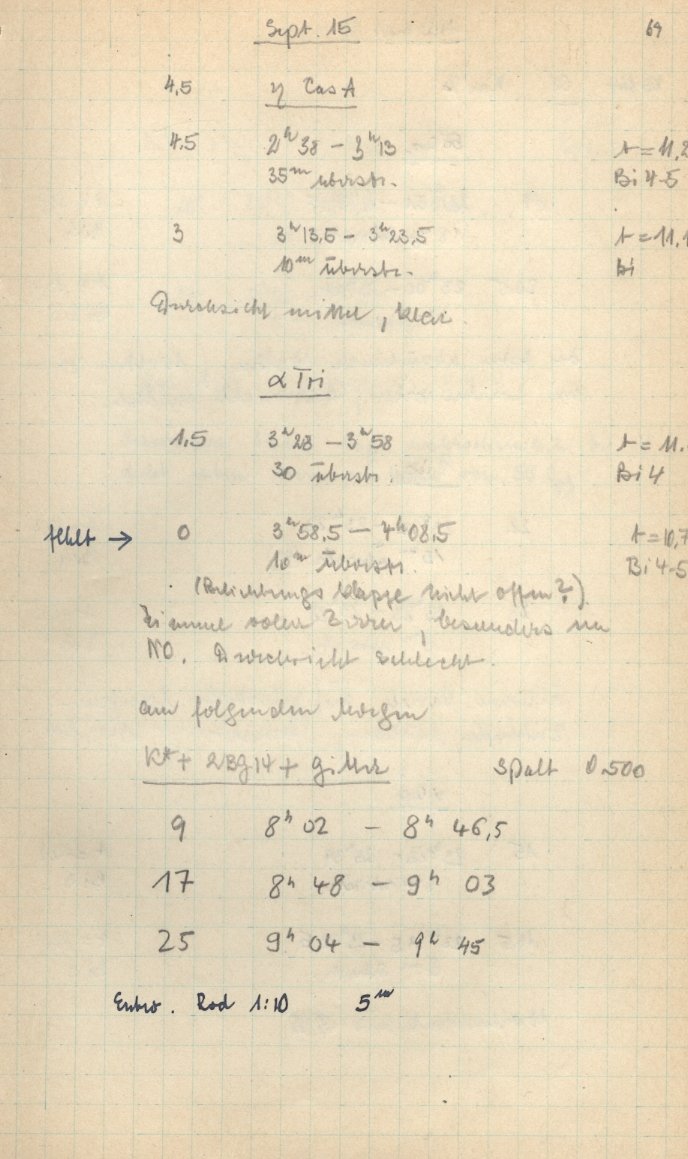 Sept. 15 69
4,5 η Cas A
4.5 2ʰ38 – 3ʰ13 t = 11,2
35ᵐ überstr. Bi 4-5
3 3ʰ13,5 – 3ʰ23,5 t = 11,1
10ᵐ überstr. Bi
Durchsicht mittel, klar.
α Tri
1,5 3ʰ28 – 3ʰ58 t = 11.
30 überstr. Bi 4
fehlt → 0 3ʰ58,5 – 4ʰ08,5 t = 10,7
10ᵐ überstr. Bi 4-5
(Belichtungsklappe nicht offen?)
Himmel voller Zirren, besonders im
NO. Durchsicht schlecht.
am folgenden Morgen
K* + 2BG14 + Gitter Spalt 0.500
9 8ʰ 02 – 8ʰ 46,5
17 8ʰ 48 – 9ʰ 03
25 9ʰ 04 – 9ʰ 45
Entw. Rod 1:10 5ᵐ